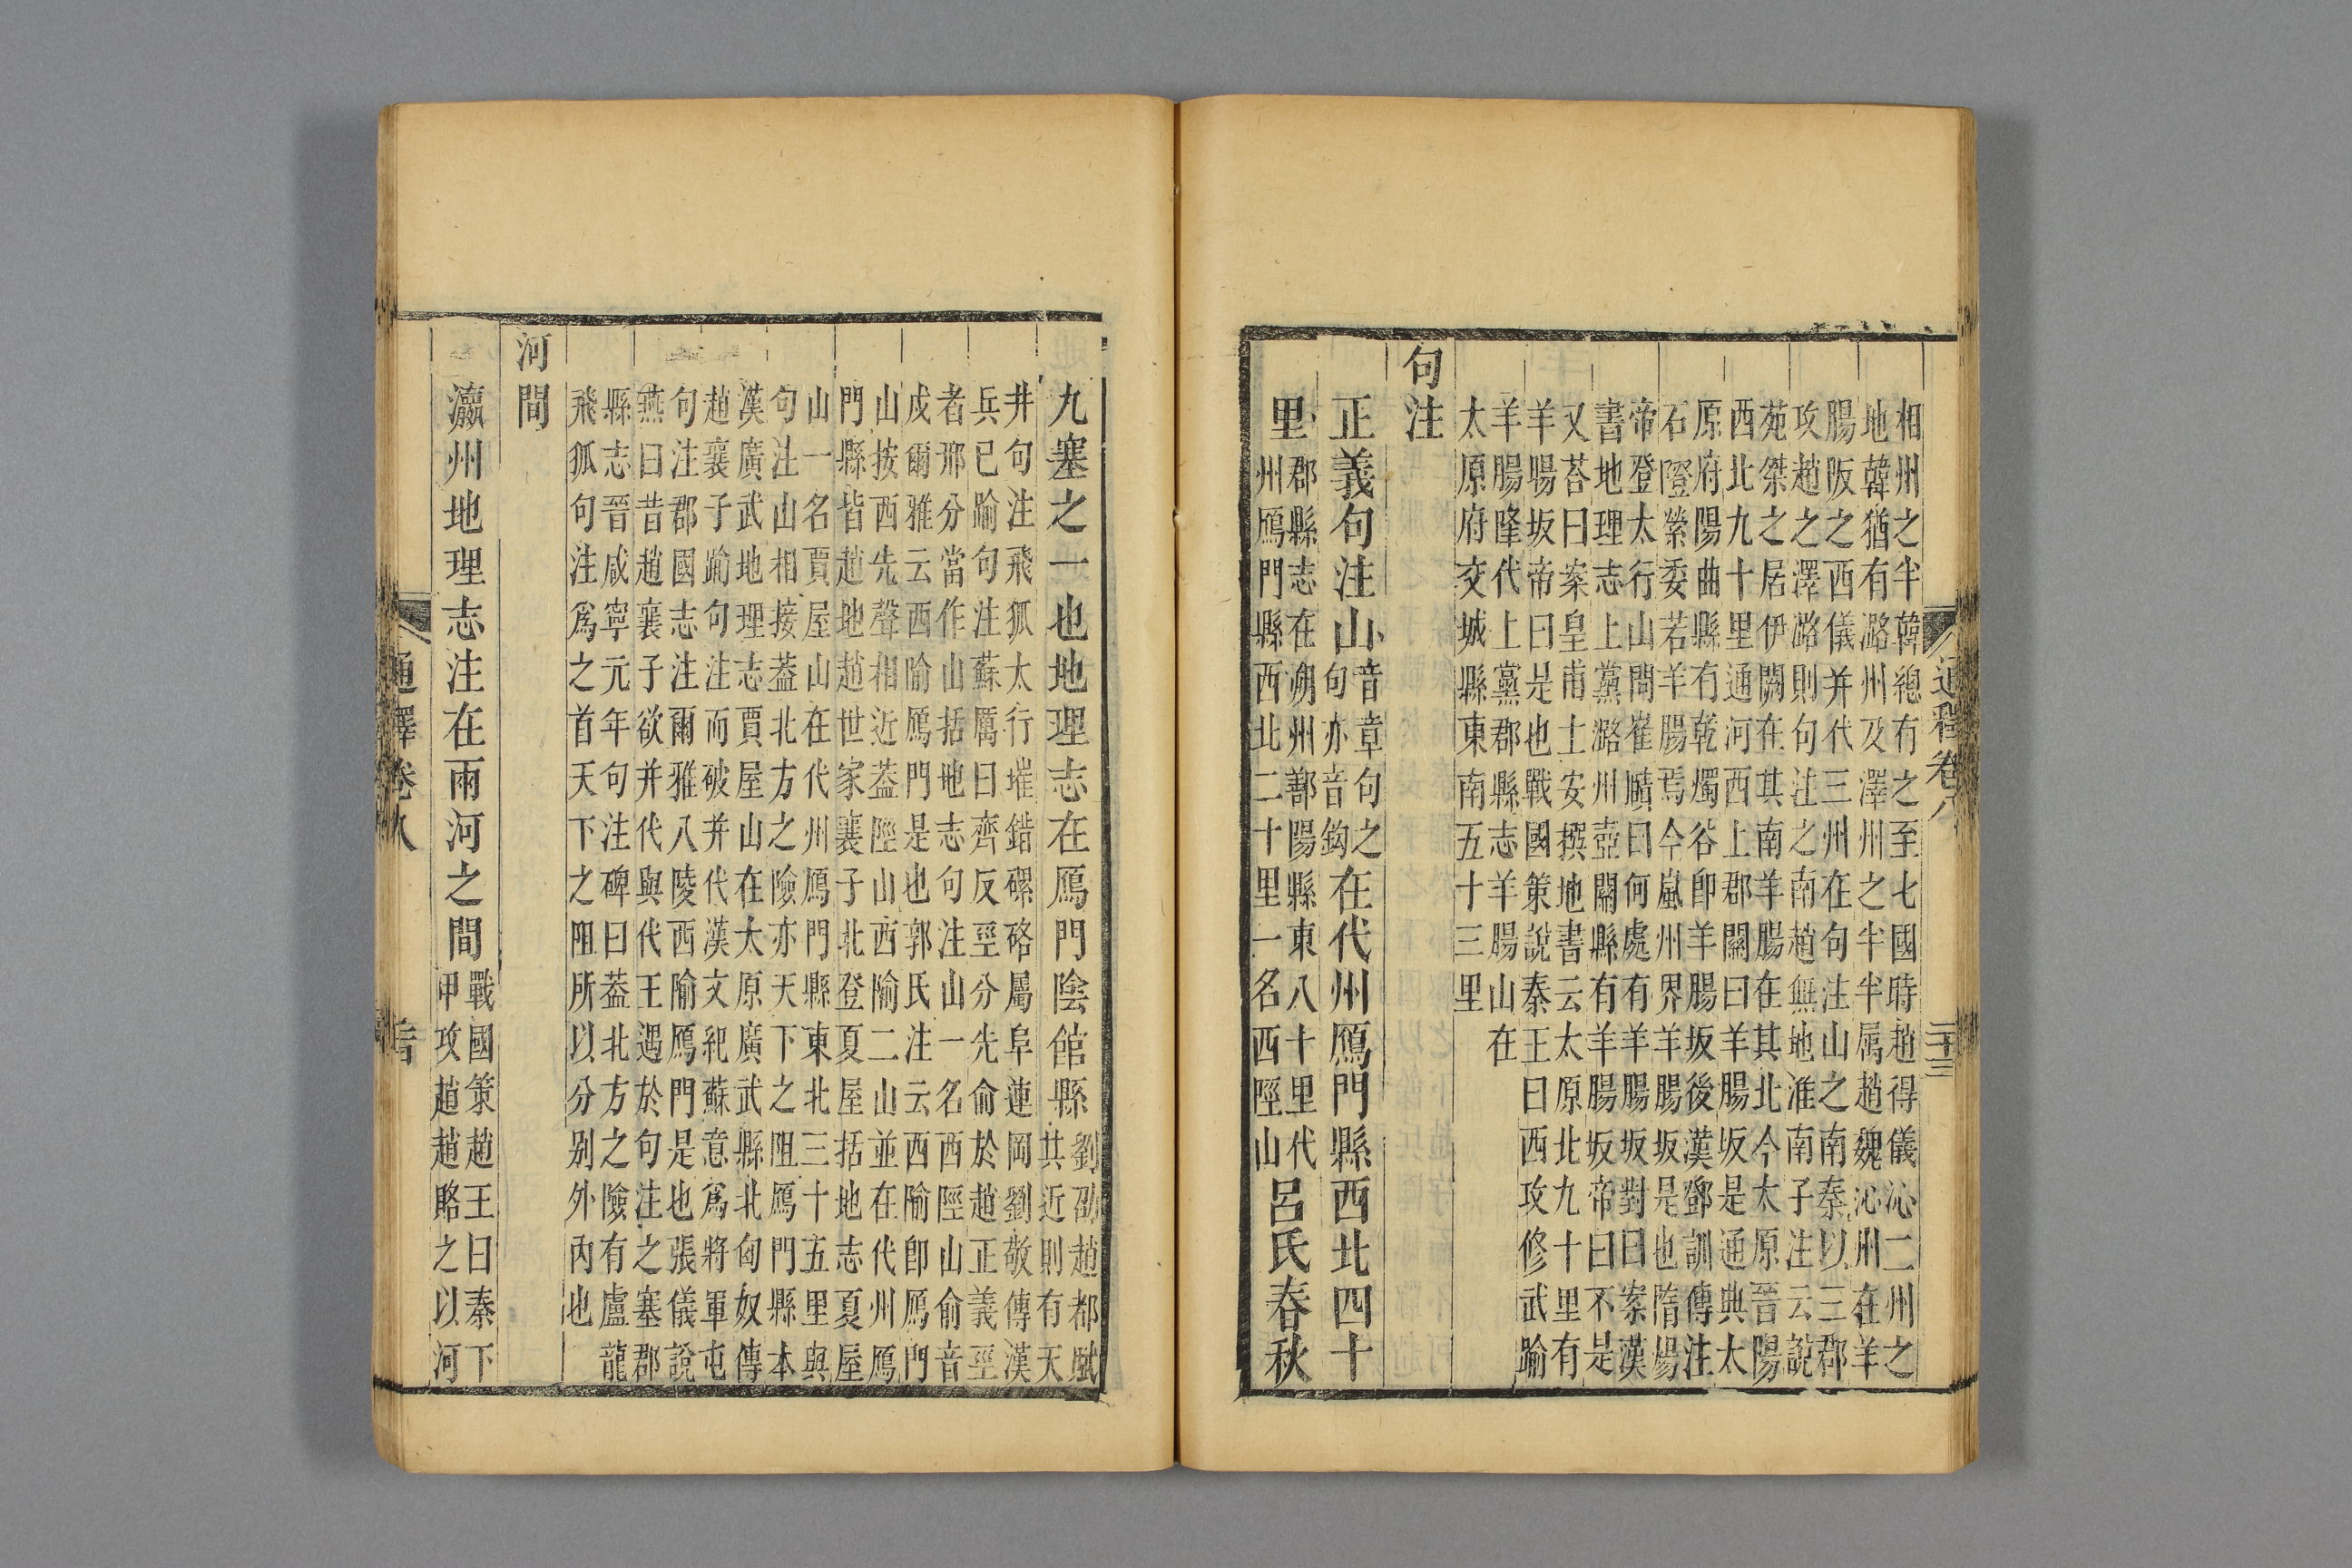 通釋卷八
二十三
相州之半韓總有之至七國時趙得儀沁二州之
地韓猶有潞州及澤州之半半属趙魏沁州在羊
腸阪之西儀并代三州在句注山之南秦以三郡
攻趙之澤潞則句注之南趙無地淮南子注云說
苑桀之居伊闕在其南羊腸在其北今太原晉陽
西北九十里通河西上郡關曰羊腸坂是通典太
原府陽曲縣有乾燭谷卽羊腸坂後漢鄧訓傳注
石隥縈委若羊腸焉今嵐州界羊腸坂是也隋煬
帝登太行山問崔賾曰何處有羊腸坂對曰案漢
書地理志上黨潞州壺關縣有羊腸坂帝曰不是
又荅曰案皇甫士安撰地書云太原北九十里有
羊腸坂帝曰是也戰國策說秦王曰西攻修武踰
羊腸降代上黨郡縣志羊腸山在
太原府交城縣東南五十三里
句注
正義句注山音章句之句亦音鈎在代州鴈門縣西北四十
里郡縣志在朔州鄯陽縣東八十里代州鴈門縣西北二十里一名西陘山呂氏春秋
九塞之一也地理志在鴈門陰館縣劉劭趙都賦其近則有天
井句注飛狐太行璀錯磥硌屬阜連岡劉敬傳漢
兵已踰句注蘇厲曰齊反巠分先俞於趙正義巠
者邢分當作山括地志句注山一名西陘山俞音
戍爾雅云西隃鴈門是也郭氏注云西隃卽鴈門
山按西先聲相近葢陘山西隃二山並在代州鴈
門縣皆趙地趙世家襄子北登夏屋括地志夏屋
山一名賈屋山在代州鴈門縣東北三十五里與
句注山相接葢北方之險亦天下之阻鴈門縣本
漢廣武地理志賈屋山在太原廣武縣北匈奴傳
趙襄子踰句注而破并代漢文紀蘇意爲將軍屯
句注郡國志注爾雅八陵西隃鴈門是也張儀說
燕曰昔趙襄子欲并代與代王遇於句注之塞郡
縣志晉咸寧元年句注碑曰葢北方之險有盧龍
飛狐句注爲之首天下之阻所以分别外內也
河間
瀛州地理志注在兩河之間戰國策趙王曰秦下甲攻趙趙賂之以河
通釋卷八